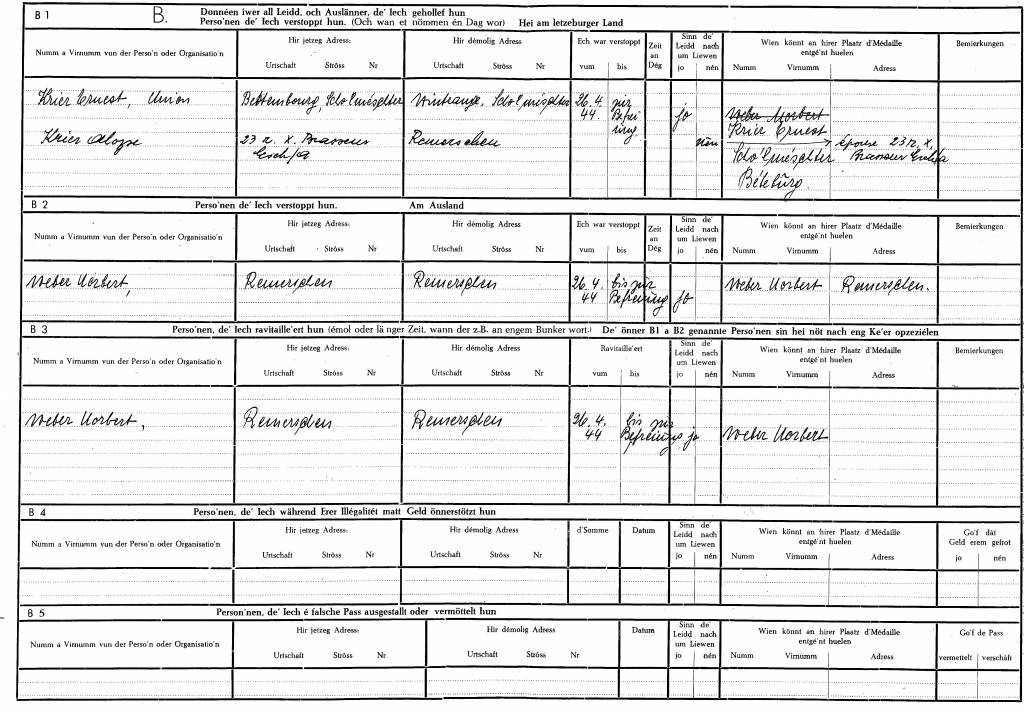 B 1 B. Donnéen iwer all Leidd, och Auslänner, de' Iech gehollef hun
Perso'nen de' Iech verstoppt hun. (Och wan et nömmen én Dag wor) Hei am letzeburger Land
Numm a Virnumm vun der Perso'n oder Organisatio'n
Hir jetzeg Adress:
Urtschaft Ströss Nr
Hir démolig Adress
Urtschaft Ströss Nr
Ech war verstoppt
vum bis
Zeit
an
Dég
Sinn de'
Leidd nach
um Liewen
jo nén
Wien könnt an hirer Plaatz d'Médaille
entgé'nt huelen
Numm Virnumm Adress
Bemierkungen
Krier Ernest, Union
Bettembourg,
26.4.
44
zur
Befrei
ung
jo
Weber Norbert
Krier Ernest
Krier Aloyse
23 r. X. Brasseur
Esch/A
Remerschen
nén
épouse 23 r. X.
Brasseur Esch/a
B 2 Perso'nen de' Iech verstoppt hun. Am Ausland
Numm a Virnumm vun der Perso'n oder Organisatio'n
Hir jetzeg Adress:
Urtschaft Ströss Nr
Hir démolig Adress
Urtschaft Ströss Nr
Ech war verstoppt
vum bis
Zeit
an
Dég
Sinn de'
Leidd nach
um Liewen
jo nén
Wien könnt an hirer Plaatz d'Médaille
entgé'nt huelen
Numm Virnumm Adress
Bemierkungen
Weber Norbert, Remerschen Remerschen 26.4. bis zur Weber Norbert Remerschen.
44 Befreiung jo
B 3 Perso'nen, de' Iech ravitaille'ert hun (émol oder länger Zeit, wann der z.B. an engem Bunker wort.) De' önner B1 a B2 genannte Perso'nen sin hei nöt nach eng Ke'er opzeziélen
Numm a Virnumm vun der Perso'n oder Organisatio'n
Hir jetzeg Adress:
Urtschaft Ströss Nr
Hir démolig Adress
Urtschaft Ströss Nr
Ravitaille'ert
vum bis
Sinn de'
Leidd nach
um Liewen
jo nén
Wien könnt an hirer Plaatz d'Médaille
entgé'nt huelen
Numm Virnumm Adress
Bemierkungen
Weber Norbert, Remerschen Remerschen 26.4. bis zur
44 Befreiung jo Weber Norbert
B 4 Perso'nen, de' Iech während Erer Illégalitét matt Geld önnerstötzt hun
Numm a Virnumm vun der Perso'n oder Organisatio'n
Hir jetzeg Adress:
Urtschaft Ströss Nr
Hir démolig Adress
Urtschaft Ströss Nr
d'Somme
Datum
Sinn de'
Leidd nach
um Liewen
jo nén
Wien könnt an hirer Plaatz d'Médaille
entgé'nt huelen
Numm Virnumm Adress
Go'f dât
Geld erem gefrot
jo nén
B 5 Person'nen, de' Iech é falsche Pass ausgestallt oder vermöttelt hun
Numm a Virnumm vun der Perso'n oder Organisatio'n
Hir jetzeg Adress:
Urtschaft Ströss Nr
Hir démolig Adress
Urtschaft Ströss Nr
Datum
Sinn de'
Leidd nach
um Liewen
jo nén
Wien könnt an hirer Plaatz d'Médaille
entgé'nt huelen
Numm Virnumm Adress
Go'f de Pass
vermettelt verschâft